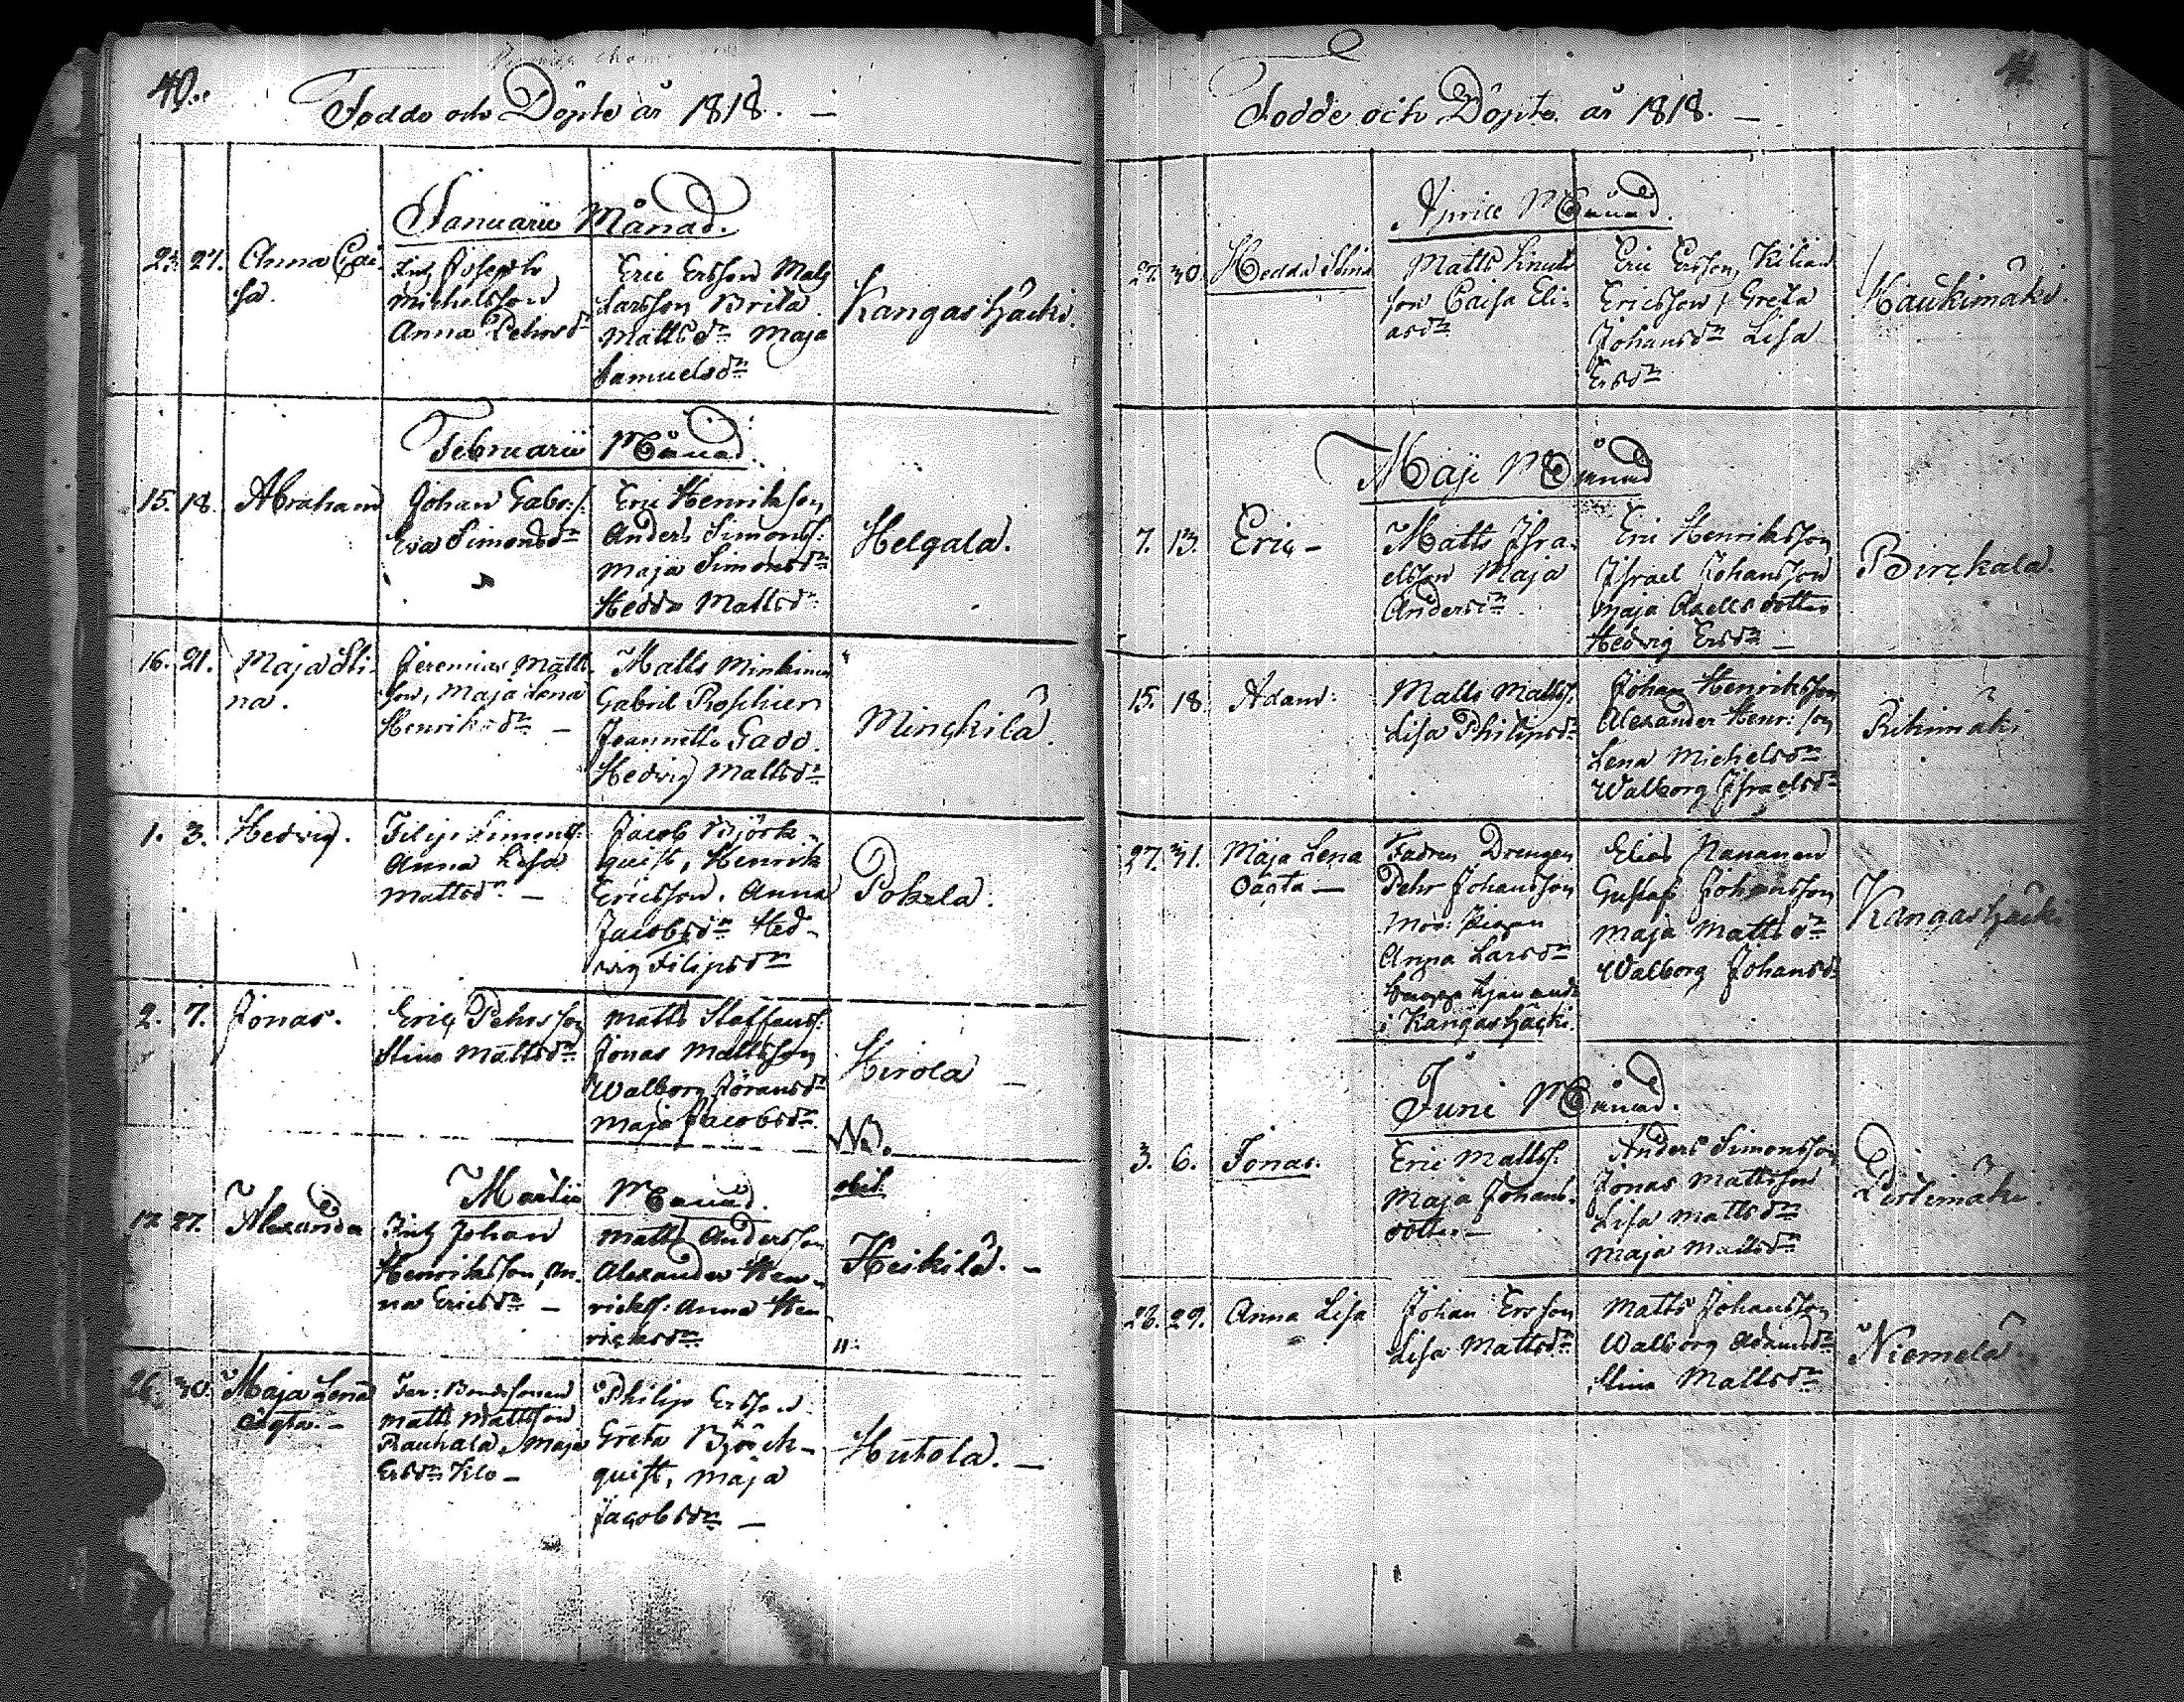 40.
Fodde och Döpte år 1818. —
Januarii Månad.
23. 27. Anna Cai
sa.
Josephs
Michelsson
Anna Pehrsdr
Eric Ersson Mats
Larsson Brita
Mattsdr Maja
Samuelsdr
Kangashäcki.
Februarii Månad.
15. 18. Abraham
Johan Gabr:s.
Eva Simonsdr
Eric Henriksson
Anders Simonss:
Maja Simonsdr
Hedda Mattsdr
Helgala.
16. 21. Maja Sti-
na.
Jeremias Matts
son, Maja Lena
Henriksdr —
Matts Minkinen
Gabriel Roschier
Jeannette Gadd.
Hedvig Mattsdr
Minckilä.
1. 3. Hedvig.
Filip Simonss:
Anna Lisa
Mattsdr —
Jacob Björk-
quist, Henrik
Ericsson. Anna
Jacobsdr Hed-
vig Filipsdr
Pokela.
2. 7. Jonas.
Eric Pehrsson
Stina Mattsdr
Matts Staffanss:
Jonas Mattsson
Walborg Göransdr
Maja Jacobsdr
Hirola —
Martii Månad.
obiit
27. Alexander
Johan
Henriksson, An-
na Ericsdr —
Matts Andersson
Alexander Hen-
rickss: Anna Hen
ricksdr
Heikilä. —
26. 30. Maja Lena
oägta. —
Matts Mattsson
Rauhala, Maja
Ersdr Kilo —
Philip Ersson
Greta Björck-
quist, Maja
Jacobsdr —
Hutola. —
Fodde och Döpte år 1818. —
Aprill Månad.
27. 30. Hedda Stina
Matts Knuts
son Caisa Eli-
asdr
Eric Ersson, Kilian
Ericsson, Greta
Johansdr Lisa
Ersdr
Haukimäki.
Maji Månad
7. 13. Eric —
Matts Isra-
elsson Maja
Andersdr
Eric Henriksson
Israel Johansson
Maja Axelsdotter
Hedvig Ersdr —
Birckala.
15. 18. Adam:
Matts Mattss:
Lisa Philipsdr
Johan Henriksson
Alexander Henr:son
Lena Michelsdr
Walborg Israelsdr
Rihimäki
27. 31. Maja Lena
Oägta —
Fadren Drengen
Pehr Johansson
Mod: Pigan
Anna Larsdr
i Kangashäcki.
Elias Nananen
Gustaf Johansson
Maja Mattsdr
Walborg Johansdr
Kangashäcki
Juni Månad.
3. 6. Jonas.
Eric Mattss:
Maja Johans-
dotter —
Anders Simonsson
Jonas Mattsson
Lisa Mattsdr
Maja Mattsdr
29. Anna Lisa
Johan Ersson
Lisa Mattsdr
Matts Johansson
Walborg Adamsdr
Stina Mattsdr
Niemelä